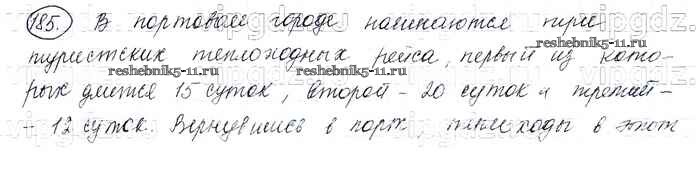 185. В портовом городе начинаются три
туристских теплоходных рейса, первый из кото-
рых длится 15 суток, второй - 20 суток и третий -
- 12 суток. Вернувшись в порт, теплоходы в этот
reshebnik5-11.ru
reshebnik5-11.ru
reshebnik5-11.ru